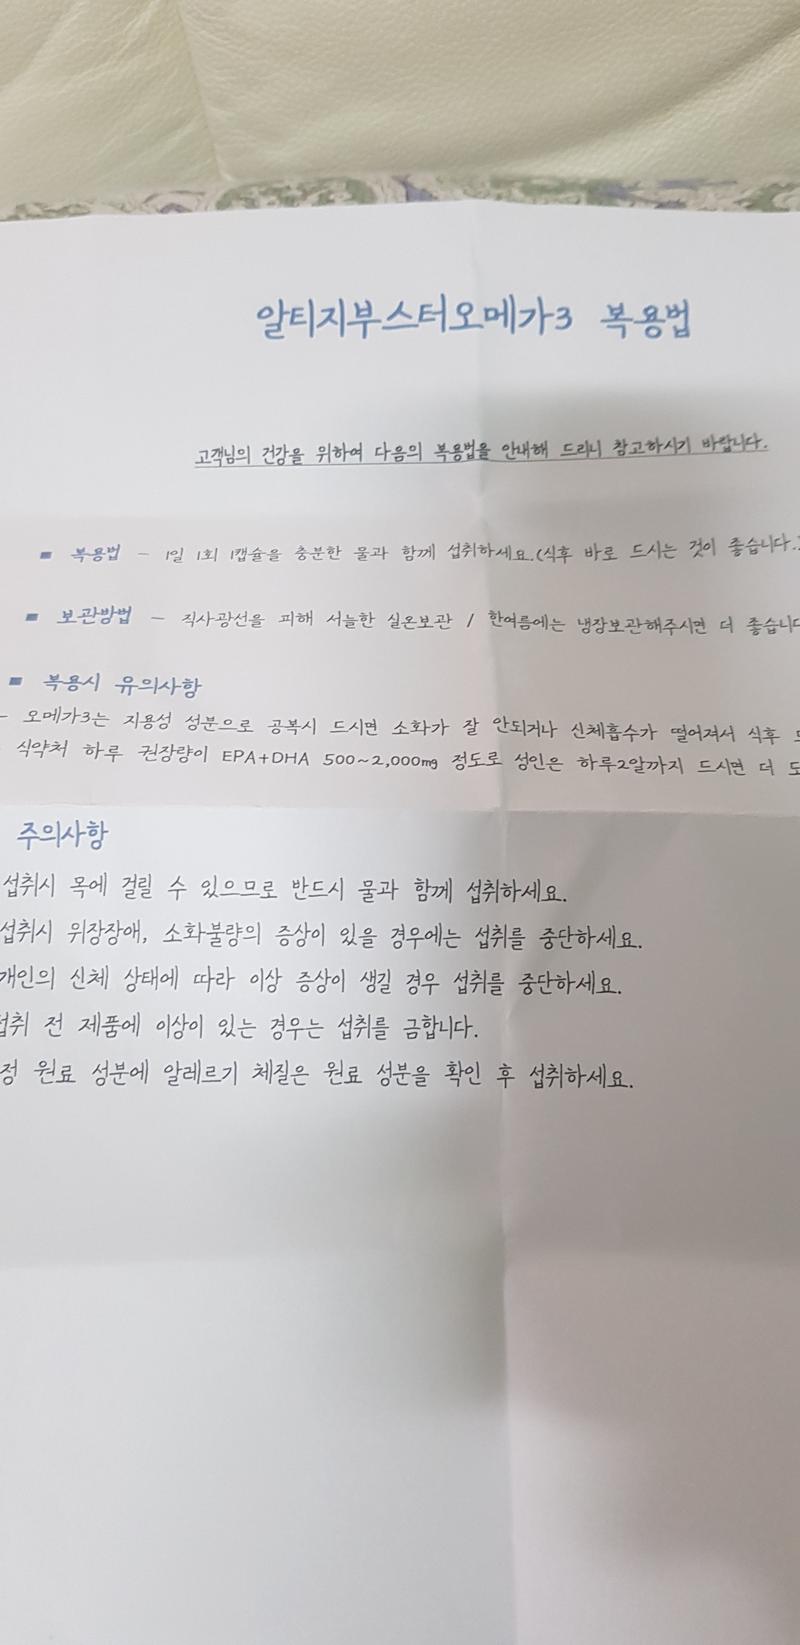 알티지부스터오메가3 복용법
고객님의 건강을 위하여 다음의 복용법을 안내해 드리니 참고하시기 바랍니다.
■ 복용법 - 1일 1회 1캡슐을 충분한 물과 함께 섭취하세요.(식후 바로 드시는 것이 좋습니다.)
■ 보관방법 - 직사광선을 피해 서늘한 실온보관 / 한여름에는 냉장보관해주시면 더
■ 복용시 유의사항
- 오메가3는 지용성 성분으로 공복시 드시면 소화가 잘 안되거나 신체흡수가 떨어져서 식후
식약처 하루 권장량이 EPA+DHA 500~2,000mg 정도로 성인은 하루2알까지 드시면 더
주의사항
섭취시 목에 걸릴 수 있으므로 반드시 물과 함께 섭취하세요.
섭취시 위장장애, 소화불량의 증상이 있을 경우에는 섭취를 중단하세요.
개인의 신체 상태에 따라 이상 증상이 생길 경우 섭취를 중단하세요.
섭취 전 제품에 이상이 있는 경우는 섭취를 금합니다.
정 원료 성분에 알레르기 체질은 원료 성분을 확인 후 섭취하세요.